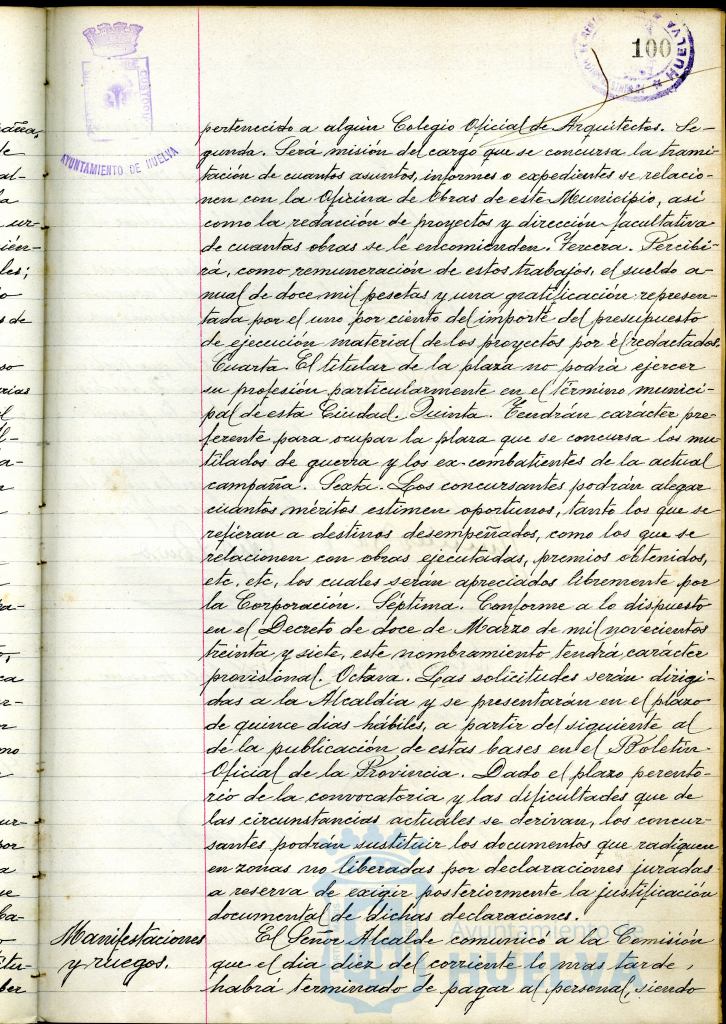 100
HUELVA
AYUNTAMIENTO DE HUELVA
pertenecido a algún Colegio Oficial de Arquitectos. Se-
gunda. Será misión del cargo que se concursa la trami-
tación de cuantos asuntos, informes o expedientes se relacio-
nen con la Oficina de Obras de este Municipio, así
como la redacción de proyectos y dirección facultativa
de cuantas obras se le encomienden. Tercera. Percibi-
rá, como remuneración de estos trabajos, el sueldo a-
nual de doce mil pesetas y una gratificación represen-
tada por el uno por ciento del importe del presupuesto
de ejecución material de los proyectos por él redactados.
Cuarta. El titular de la plaza no podrá ejercer
su profesión particularmente en el término munici-
pal de esta Ciudad. Quinta. Tendrán carácter pre-
ferente para ocupar la plaza que se concursa los mu-
tilados de guerra y los ex-combatientes de la actual
campaña. Sexta. Los concursantes podrán alegar
cuantos méritos estimen oportunos, tanto los que se
refieran a destinos desempeñados, como los que se
relacionen con obras ejecutadas, premios obtenidos,
etc, etc, los cuales serán apreciados libremente por
la Corporación. Séptima. Conforme a lo dispuesto
en el Decreto de doce de Marzo de mil novecientos
treinta y siete, este nombramiento tendrá carácter
provisional. Octava. Las solicitudes serán dirigi-
das a la Alcaldía y se presentarán en el plazo
de quince dias hábiles, a partir del siguiente al
de la publicación de estas bases en el Boletín
Oficial de la Provincia. Dado el plazo perento-
rio de la convocatoria y las dificultades que de
las circunstancias actuales se derivan, los concur-
santes podrán sustituir los documentos que radiquen
en zonas no liberadas por declaraciones juradas
a reserva de exigir posteriormente la justificación
documental de dichas declaraciones.
Manifestaciones
y ruegos.
El Señor Alcalde comunicó a la Comisión
que el dia diez del corriente lo mas tarde,
habrá terminado de pagar al personal, siendo
Ayuntamiento de
HUELVA